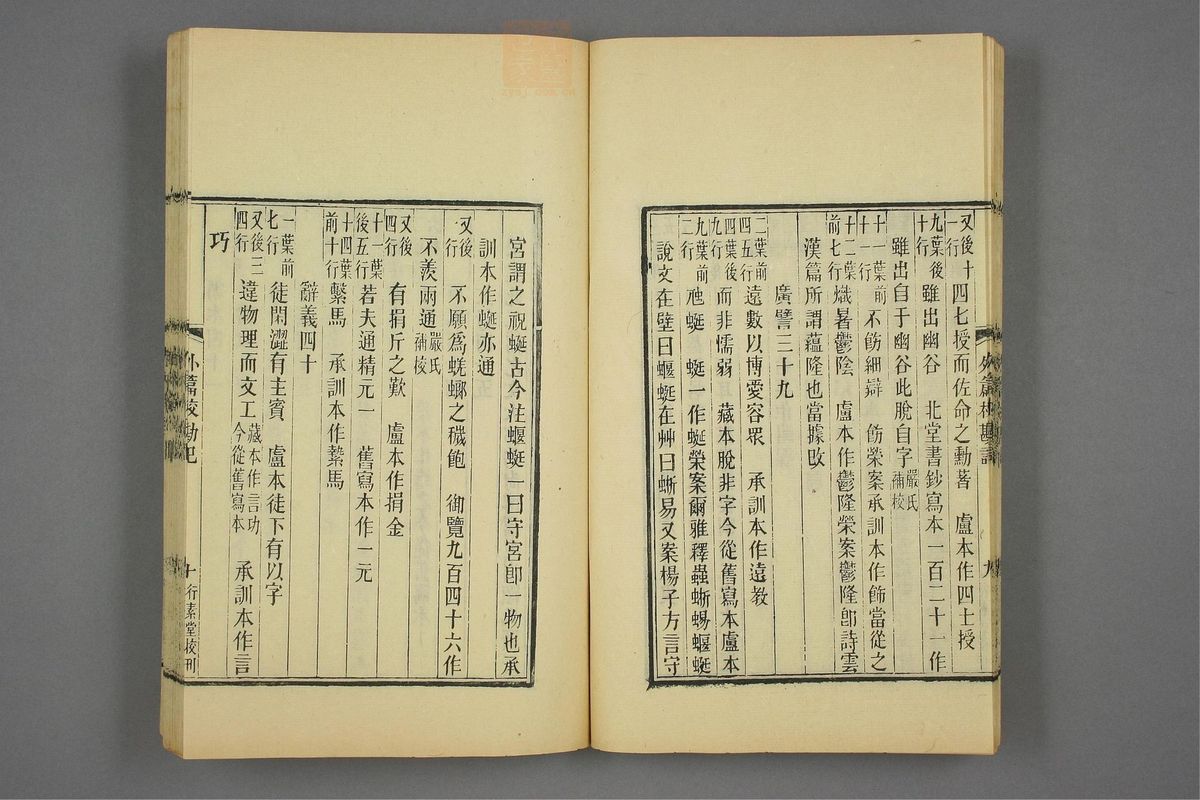 又後十一行四七授而佐命之勳著　盧本作四士授
九葉後十行雖出幽谷　北堂書鈔寫本一百二十一作
雖出自于幽谷此脫自字嚴氏補校
十一葉前十一行不飭細辯　飭榮案承訓本作飾當從之
十二葉前七行熾暑鬱陰　盧本作鬱隆榮案鬱隆卽詩雲
漢篇所謂蘊隆也當據改
廣譬三十九
二葉前四五行遠數以博愛容眾　承訓本作遠教
四葉後九行而非懦弱　藏本脫非字今從舊寫本盧本
九葉前二行虵蜓　蜓一作蜓榮案爾雅釋蟲蜥蜴蝘蜓
說文在壁曰蝘蜓在艸曰蜥易又案楊子方言守
外篇校勘記
九
宮謂之祝蜓古今注蝘蜓一曰守宮卽一物也承
訓本作蜒亦通
又後一行不願為蜣螂之穢飽　御覽九百四十六作
不羨兩通嚴氏補校
又後四行有捐斤之歎　盧本作捐金
十一葉後五行若夫通精元一　舊寫本作一元
十四葉前十行繫馬　承訓本作縶馬
辭義四十
一葉前七行徒閑澀有主賓　盧本徒下有以字
又後三四行違物理而文工藏本作言功今從舊寫本　承訓本作言
巧
外篇校勘記
十
行素堂校刊